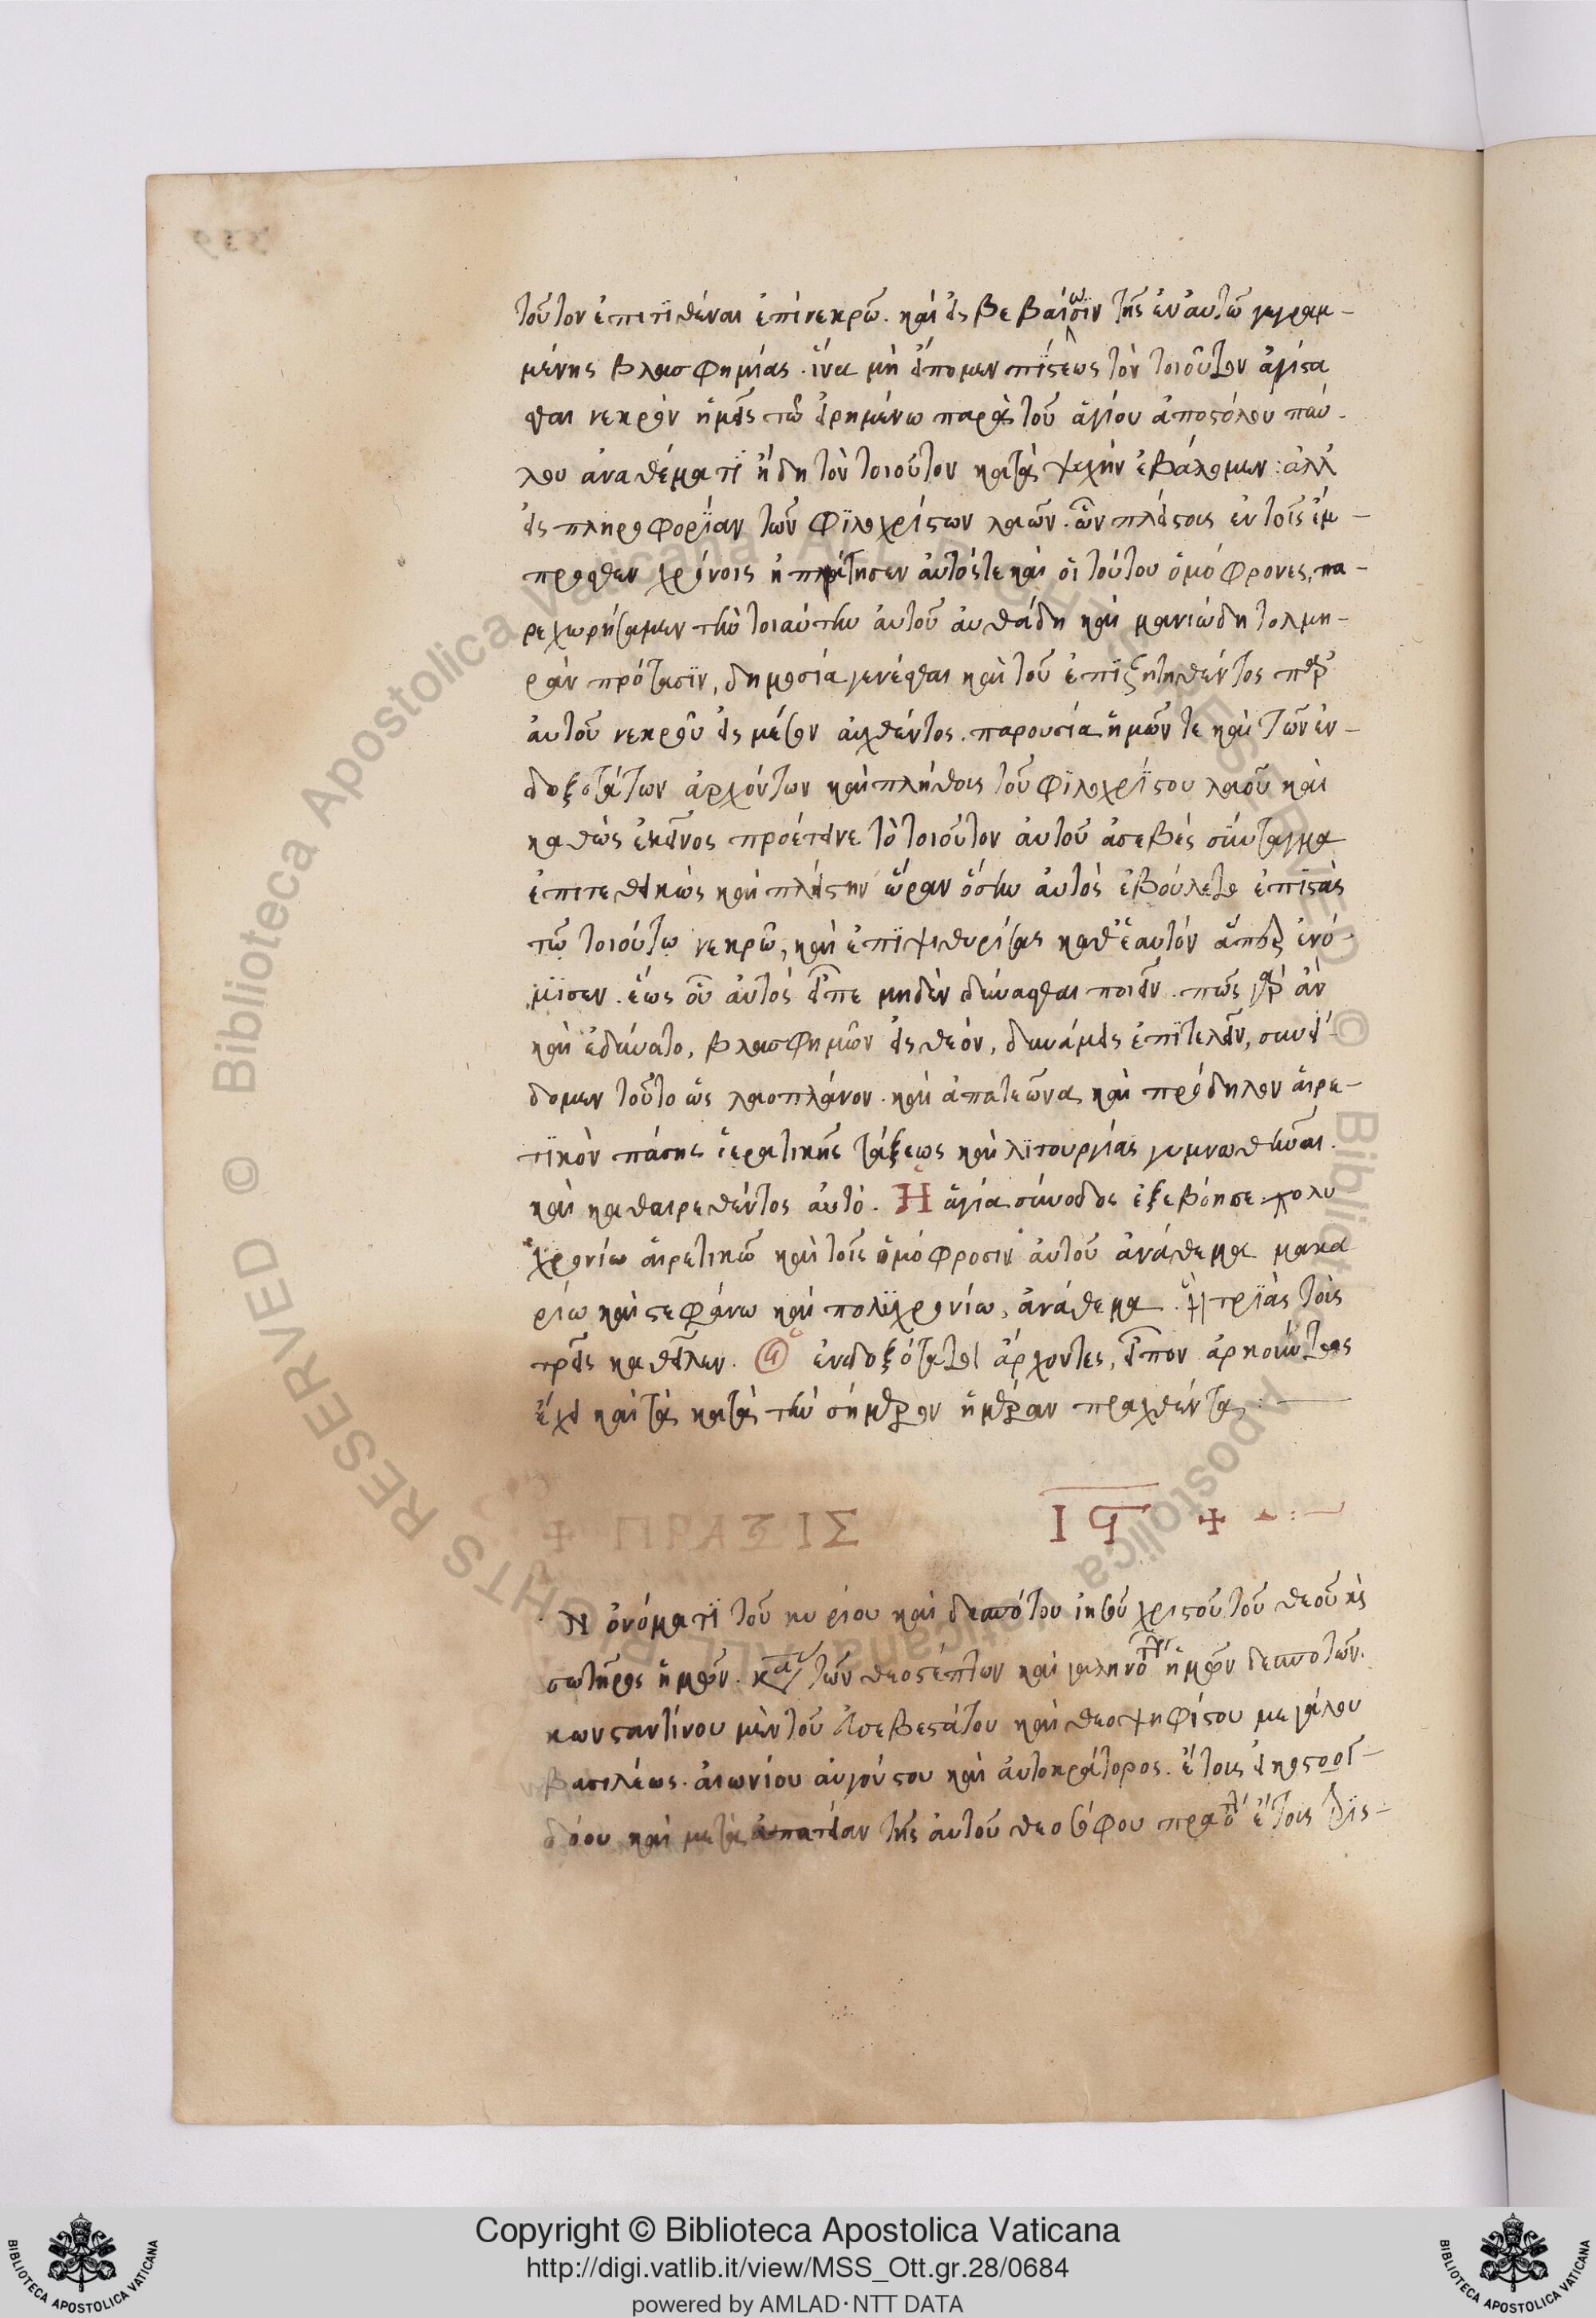 τοῦτον ἐπιτϊθέναι ἐπὶ νεκρῶ. καὶ εἰς βεβαίωσϊν τῆς ἐν αὐτῶ γεγραμ-
μένης βλασφημίας. ἵνα μὴ εἴπομεν πίστεως τὸν τοιοῦτον ἅψασ
θαι νεκρὸν ἡμεῖς τῶ εἰρημένω παρὰ τοῦ ἁγίου ἀποστόλου παύ-
λου ἀναθέματϊ ἤδη τὸν τοιοῦτον κατὰ ψυχὴν ἐβάλομεν: ἀλλ
εἰς πληροφορΐαν τῶν φϊλοχρίστων λαῶν. ὧν πλείστους ἐν τοῖς ἔμ-
προσθεν χρόνοις ἠπάτησεν αὐτός τε καὶ οἱ τούτου ὁμόφρονες, πα-
ρεχωρήσαμεν τὴν τοιαύτην αὐτοῦ αὐθάδη καὶ μανιώδη τολμη-
ρὰν πρότασϊν, δημοσία γενέσθαι καὶ τοῦ ἐπϊζητηθέντος παρ
αὐτοῦ νεκροῦ εἰς μέσον ἀχθέντος. παρουσία ἡμῶν τε καὶ τῶν ἐν-
δοξοτάτων ἀρχόντων καὶ πλήθους τοῦ φϊλοχρΐστου λαοῦ καὶ
καθὼς ἐκεῖνος προέτεινε τὸ τοιοῦτον αὐτοῦ ἀσεβὲς σύνταγμα
ἐπιτεθεικὼς καὶ πλείστην ὥραν ὅσην αὐτὸς ἐβούλετο ἐπϊστὰς
τῶ τοιούτω νεκρῶ, καὶ ἐπϊψιθυρίσας καθ' ἑαυτὸν ἅπερ ἐνό-
μϊσεν. ἕως οὗ αὐτὸς εἶπε μηδὲν δύνασθαι ποιεῖν. πῶς γὰρ ἂν
καὶ ἐδύνατο, βλασφημῶν εἰς θεόν, δυνάμεις ἐπϊτελεῖν, συνεί-
δομεν τοῦτο ὡς λαοπλάνον. καὶ ἀπατεῶνα, καὶ πρόδηλον αἱρε-
τϊκὸν πάσης ἱερατικῆς τάξεως καὶ λϊτουργίας γυμνωθῆναι.
καὶ καθαιρεθέντος αὐτό. Η ἁγία σύνοδος ἐξεβόησε. πολυ
χρονίω αἱρετικῶ καὶ τοῖς ὁμόφροσιν αὐτοῦ ἀνάθεμα μακα
ρίω καὶ στεφάνω καὶ πολϋχρονίω, ἀνάθεμα. ἡ τρϊὰς τοὺς
τρεῖς καθεῖλεν. οἱ ἐνδοξότατοι ἄρχοντες, εἶπον ἀρκούντως
ἔχει καὶ τὰ κατὰ τὴν σήμερον ἡμέραν πραχθέντα:
+ ΠΡΑΞΙΣ Ιϛ +
Ν ὀνόματϊ τοῦ κυρίου καὶ δεσπότου ἰησοῦ χριστοῦ τοῦ θεοῦ κὶ
σωτῆρος ἡμῶν. κατὰ τῶν θεοστέπτων καὶ γαληνο ἡμῶν δεσποτῶν.
κωνσταντίνου μὲν τοῦ εὐσεβεστάτου καὶ θεοψηφίστου μεγάλου
βασιλέως. αἰωνίου αὐγούστου καὶ αὐτοκράτορος. ἔτους εἰκοστοογ-
δόου καὶ μετὰ ὑπατείαν τῆς αὐτοῦ θεοσόφου πραό ἔτους τρϊς-